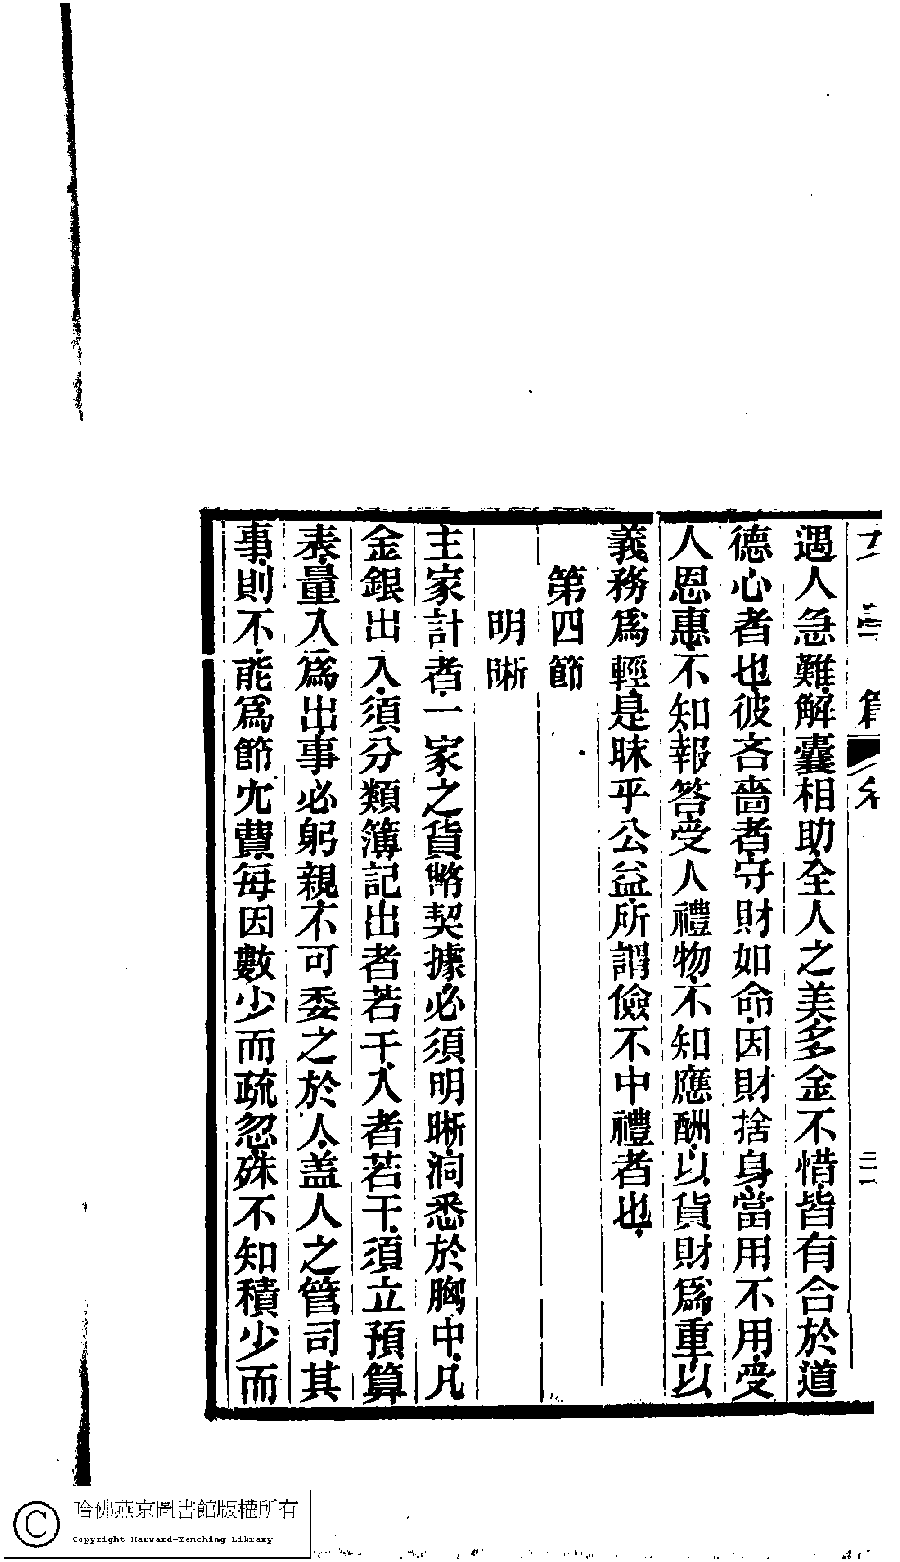 遇人急難解囊相助全人之美多金不惜皆有合於道
德心者也彼吝嗇者守財如命因財捨身當用不用受
人恩惠不知報答受人禮物不知應酬以貨財爲重以
義務爲輕是昧乎公益所謂儉不中禮者也
第四節
明晰
主家計者一家之貨幣契據必須明晰洞悉於胸中凡
金銀出入須分類簿記出者若干入者若干須立預算
表量入爲出事必躬親不可委之於人盖人之管司其
事則不能爲節冗費每因數少而疏忽殊不知積少而
哈佛燕京圖書館版權所有
Copyright Harvard-Yenching Library